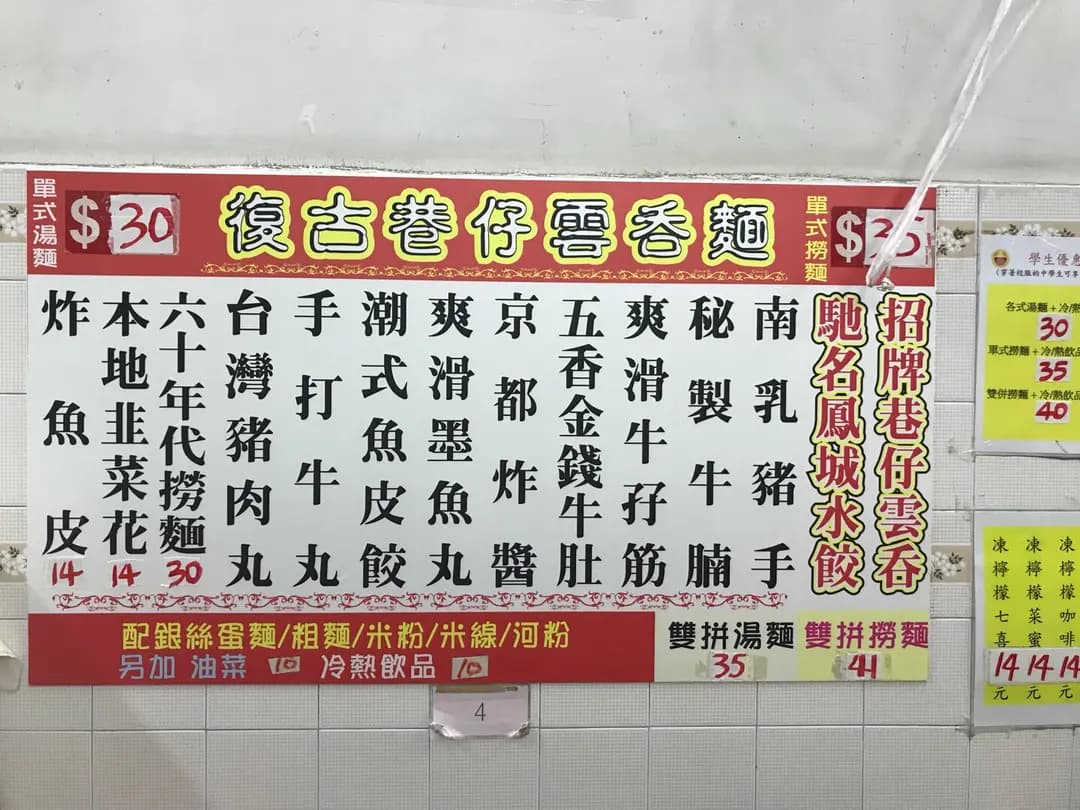 單式湯麵
$30
復古巷仔雲吞麵
單式撈麵
$35
招牌巷仔雲吞
馳名鳳城水餃
南乳豬手
秘製牛腩
爽滑牛孖筋
五香金錢牛肚
京都炸醬
爽滑墨魚丸
潮式魚皮餃
手打牛丸
台灣豬肉丸
六十年代撈麵 30
本地韭菜花 14
炸魚皮 14
配銀絲蛋麵/粗麵/米粉/米線/河粉
另加 油菜 10 冷熱飲品 10
雙拼湯麵
35
雙拼撈麵
41
4
學生優惠
(穿著校服的中學生可享
各式湯麵+冷/熱
30
單式撈麵+冷/熱飲品
35
雙併撈麵+冷/熱飲品
40
凍檸檬七喜 14元
凍檸檬菜蜜 14元
凍檸檬咖啡 14元